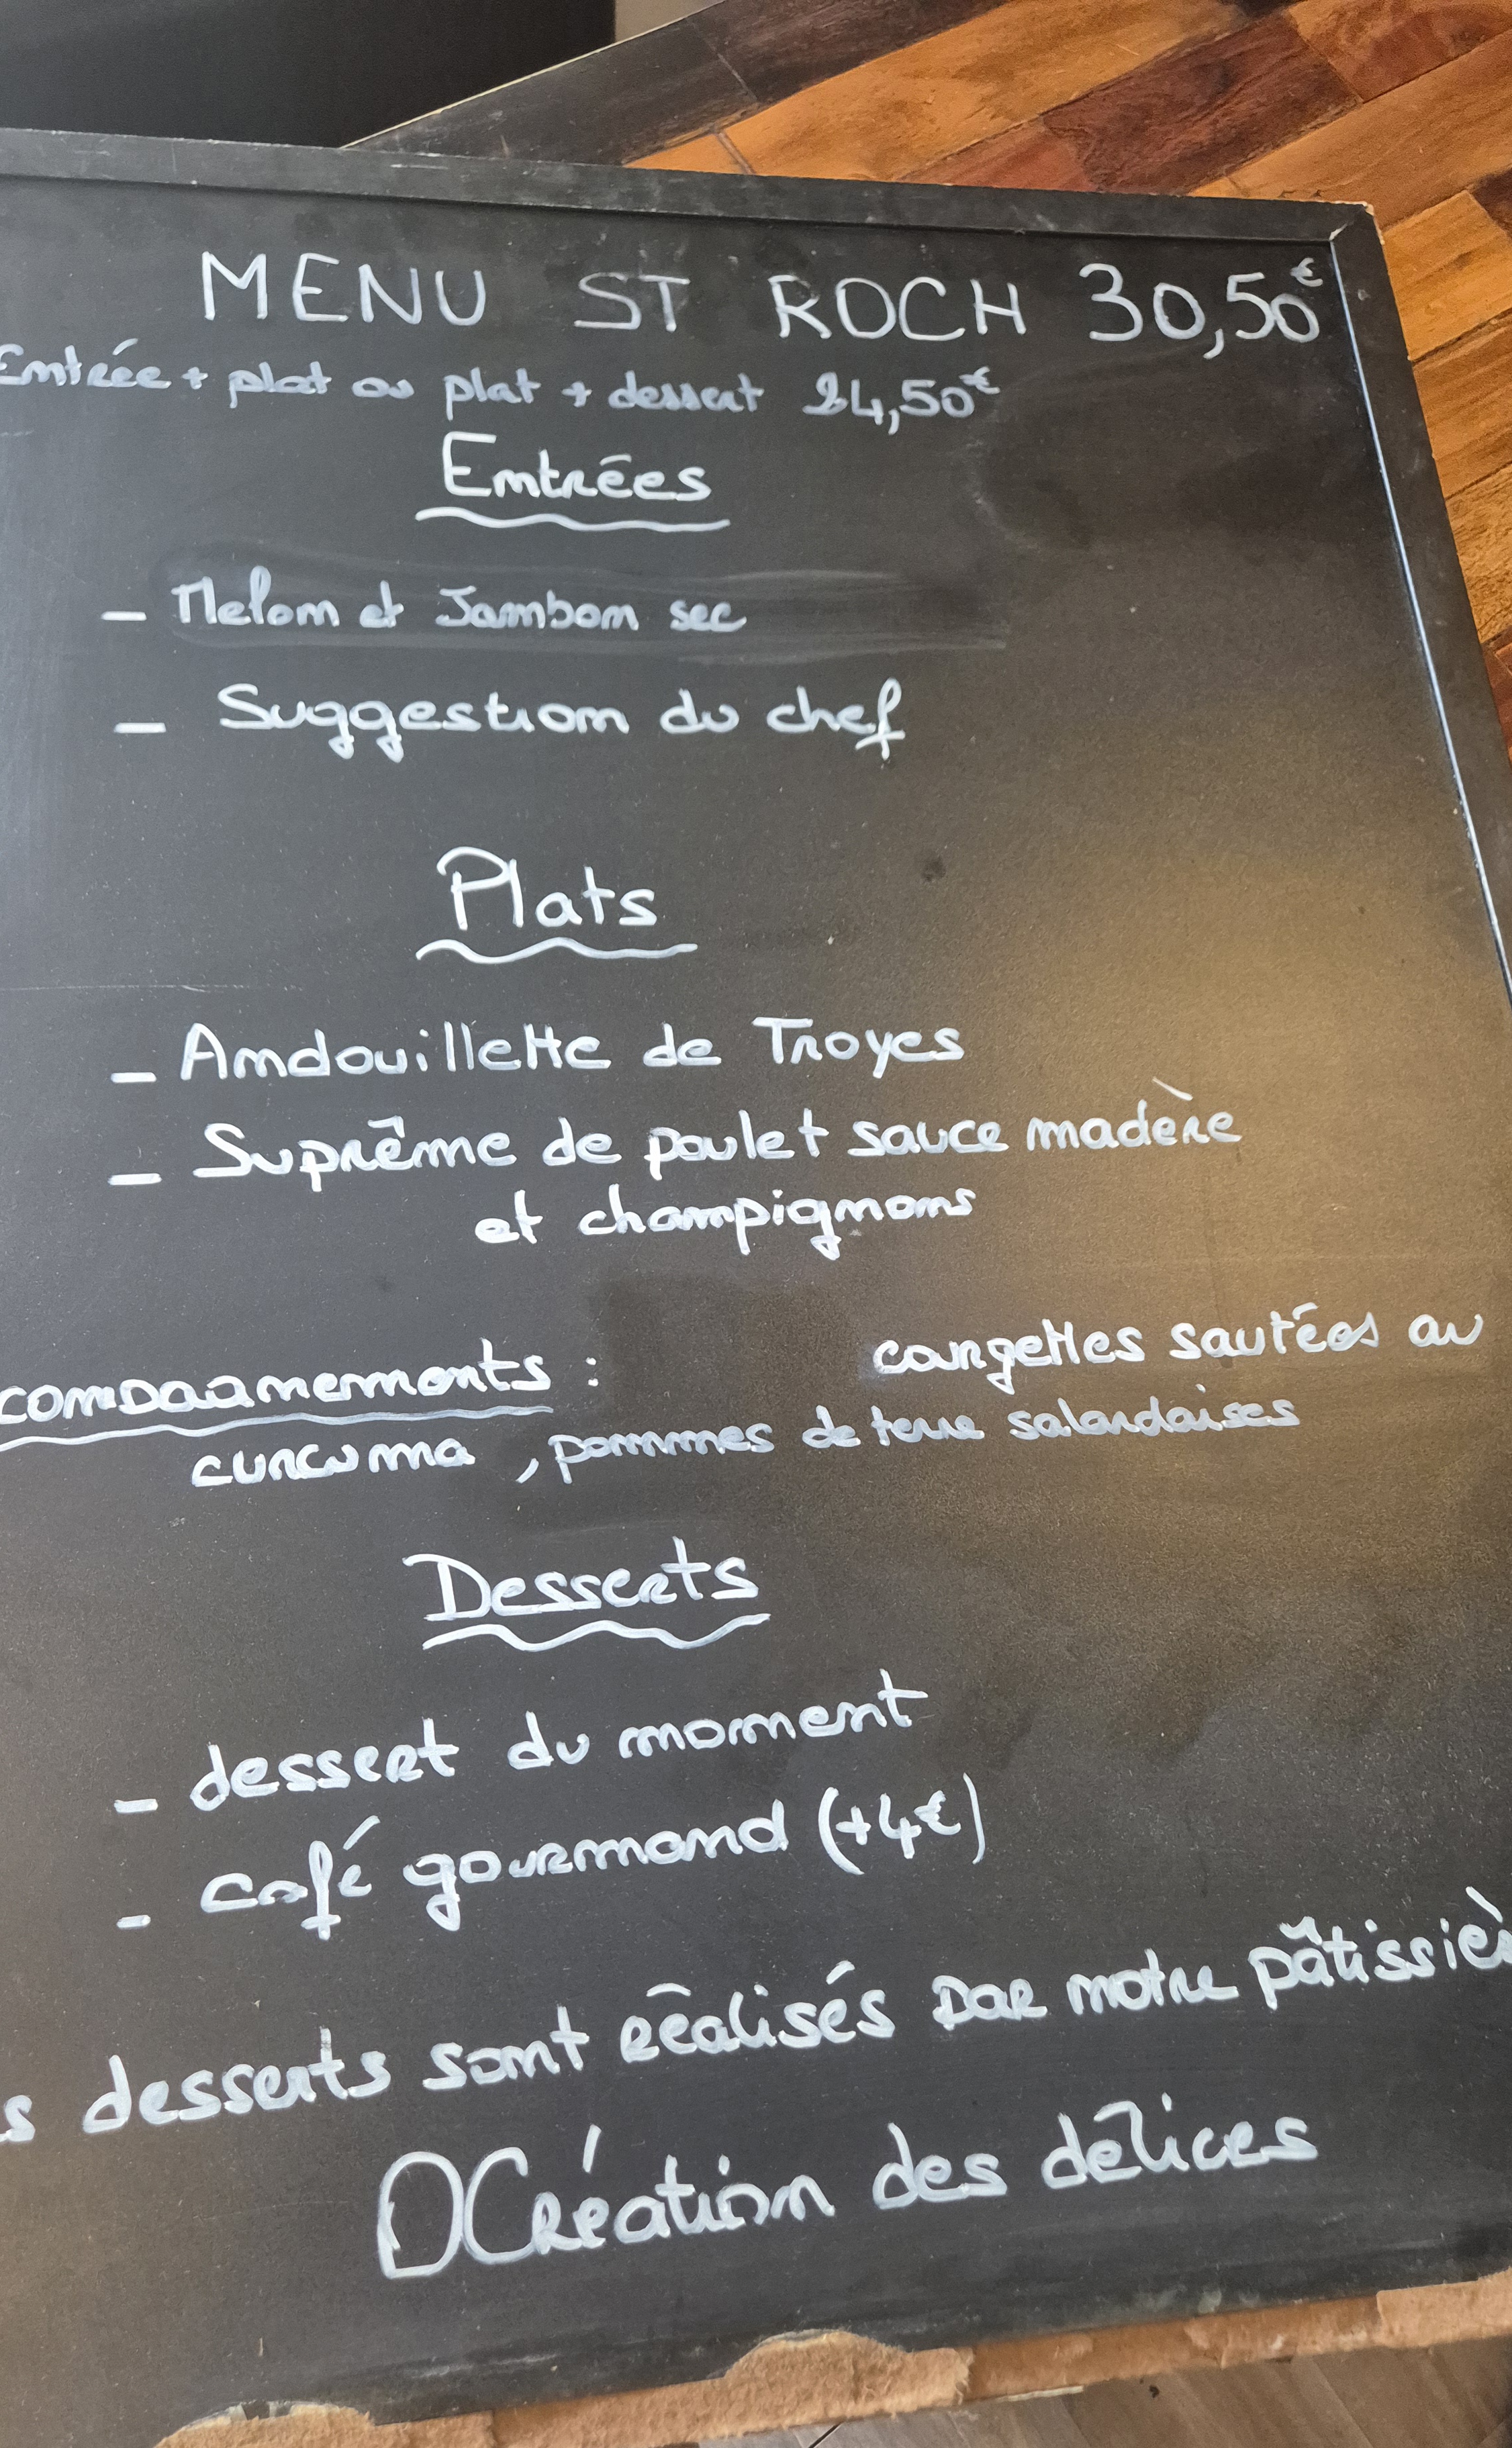 MENU ST ROCH 30,50€
Entrée + plat ou plat + dessert 24,50€
Entrées
- Melon et Jambon sec
- Suggestion du chef
Plats
- Andouillette de Troyes
- Suprême de poulet sauce madère
et champignons
compagnements : courgettes sautées au
curcuma, pommes de terre salardaises
Desserts
- dessert du moment
- café gourmand (+4€)
s desserts sont réalisés par notre pâtissièr
DCréation des délices